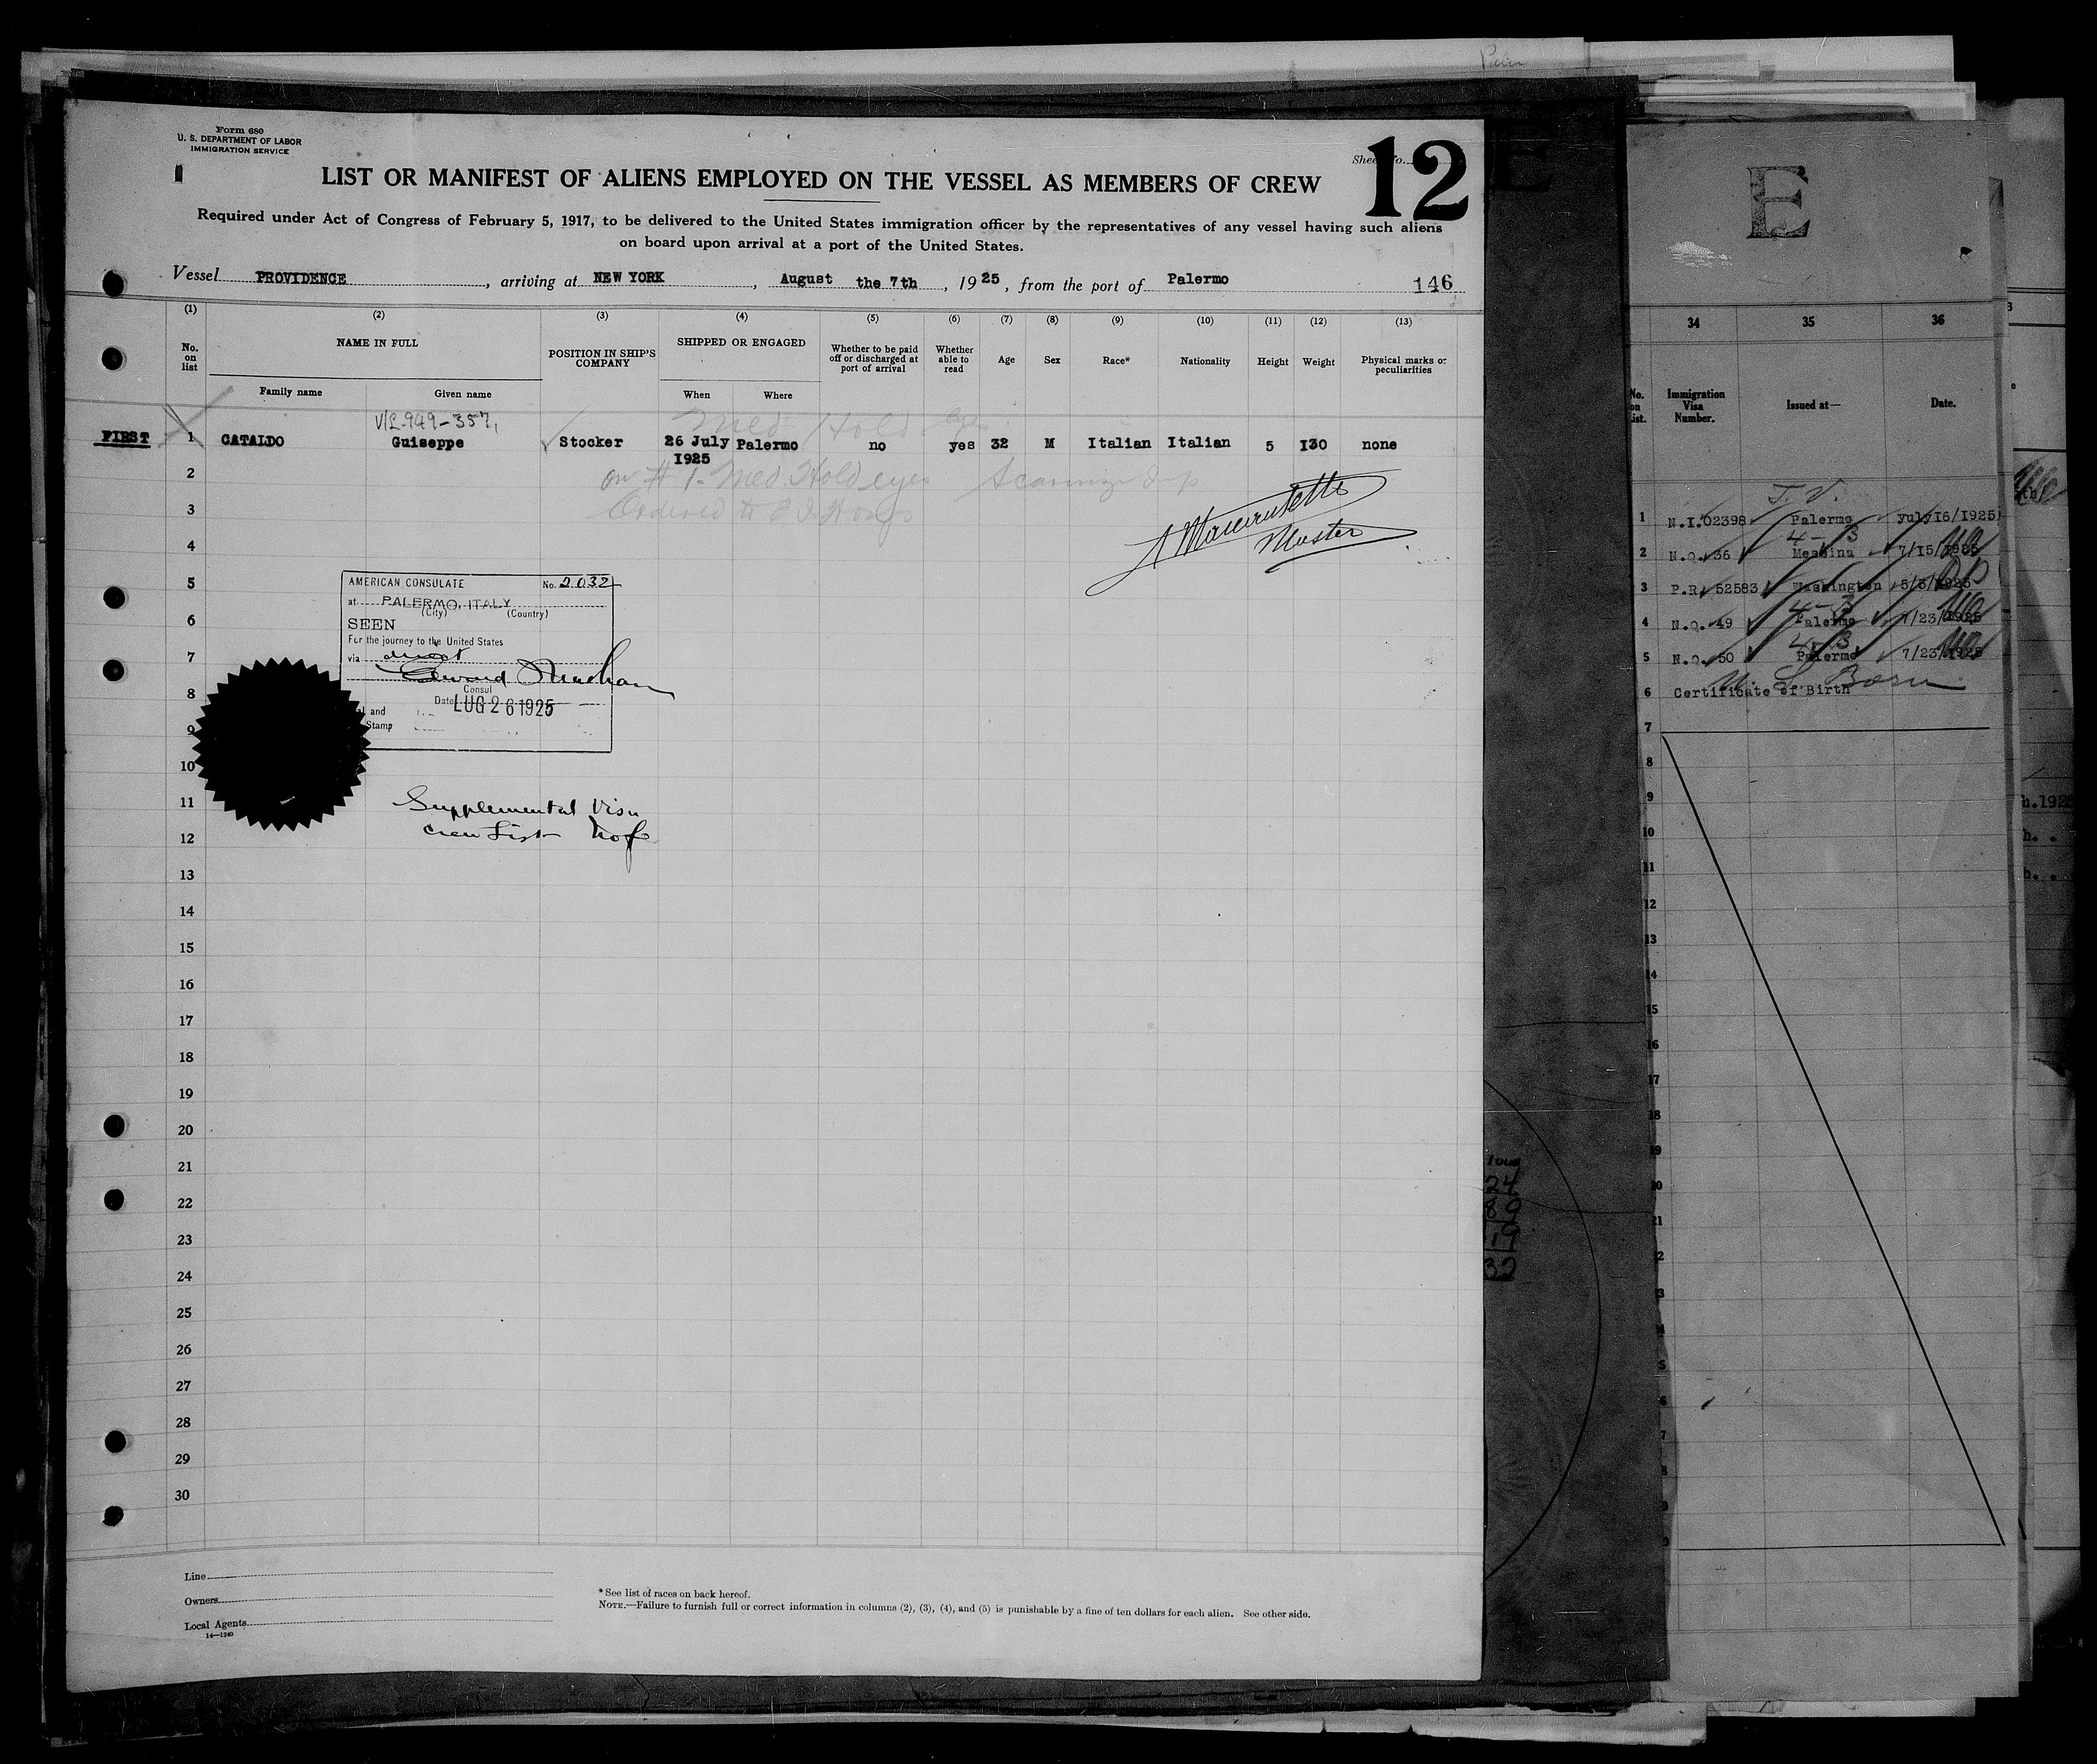 Form 680
U. S. DEPARTMENT OF LABOR
IMMIGRATION SERVICE
Sheet No.
12
LIST OR MANIFEST OF ALIENS EMPLOYED ON THE VESSEL AS MEMBERS OF CREW
Required under Act of Congress of February 5, 1917, to be delivered to the United States immigration officer by the representatives of any vessel having such aliens
on board upon arrival at a port of the United States.
Vessel PROVIDENCE, arriving at NEW YORK, August the 7th, 1925, from the port of Palermo 146
(1) (2) (3) (4) (5) (6) (7) (8) (9) (10) (11) (12) (13)
No. on list NAME IN FULL POSITION IN SHIP'S COMPANY SHIPPED OR ENGAGED Whether to be paid off or discharged at port of arrival Whether able to read Age Sex Race* Nationality Height Weight Physical marks or peculiarities
Family name Given name When Where
V/L-949-357,
Med Hold eyes
FIRST 1 CATALDO Guiseppe Stocker 26 July 1925 Palermo no yes 32 M Italian Italian 5 130 none
2 on # 1- Med. Hold eyes
3 Ordered to E I Hosp
Master
4
5
6
7
8
9
10
11
12
13
14
15
16
17
18
19
20
21
22
23
24
25
26
27
28
29
30
AMERICAN CONSULATE No. 2032
at PALERMO, ITALY
(City) (Country)
SEEN
For the journey to the United States
via direct
Edward
Consul
Date LUG 26 1925
and
Stamp
Supplemental Visa
Crew List No fee
Line
Owners
Local Agents
14—1240
* See list of races on back hereof.
NOTE.—Failure to furnish full or correct information in columns (2), (3), (4), and (5) is punishable by a fine of ten dollars for each alien. See other side.
E
34 35 36
No. on list. Immigration Visa Number. Issued at— Date.
T. V.
1 N.I.02398 Palermo yuly16/1925
4-3
2 N.Q. 36 Messina 7/15/1925
3 P.R. 52583 Washington 5/5/1925
4-3
4 N.Q. 49 Palermo 7/23/1925
4-3
5 N.Q. 50 Palermo 7/23/1925
U. S. Born
6 Certificate of Birth
7
8
9
10
11
12
13
14
15
16
17
18
19